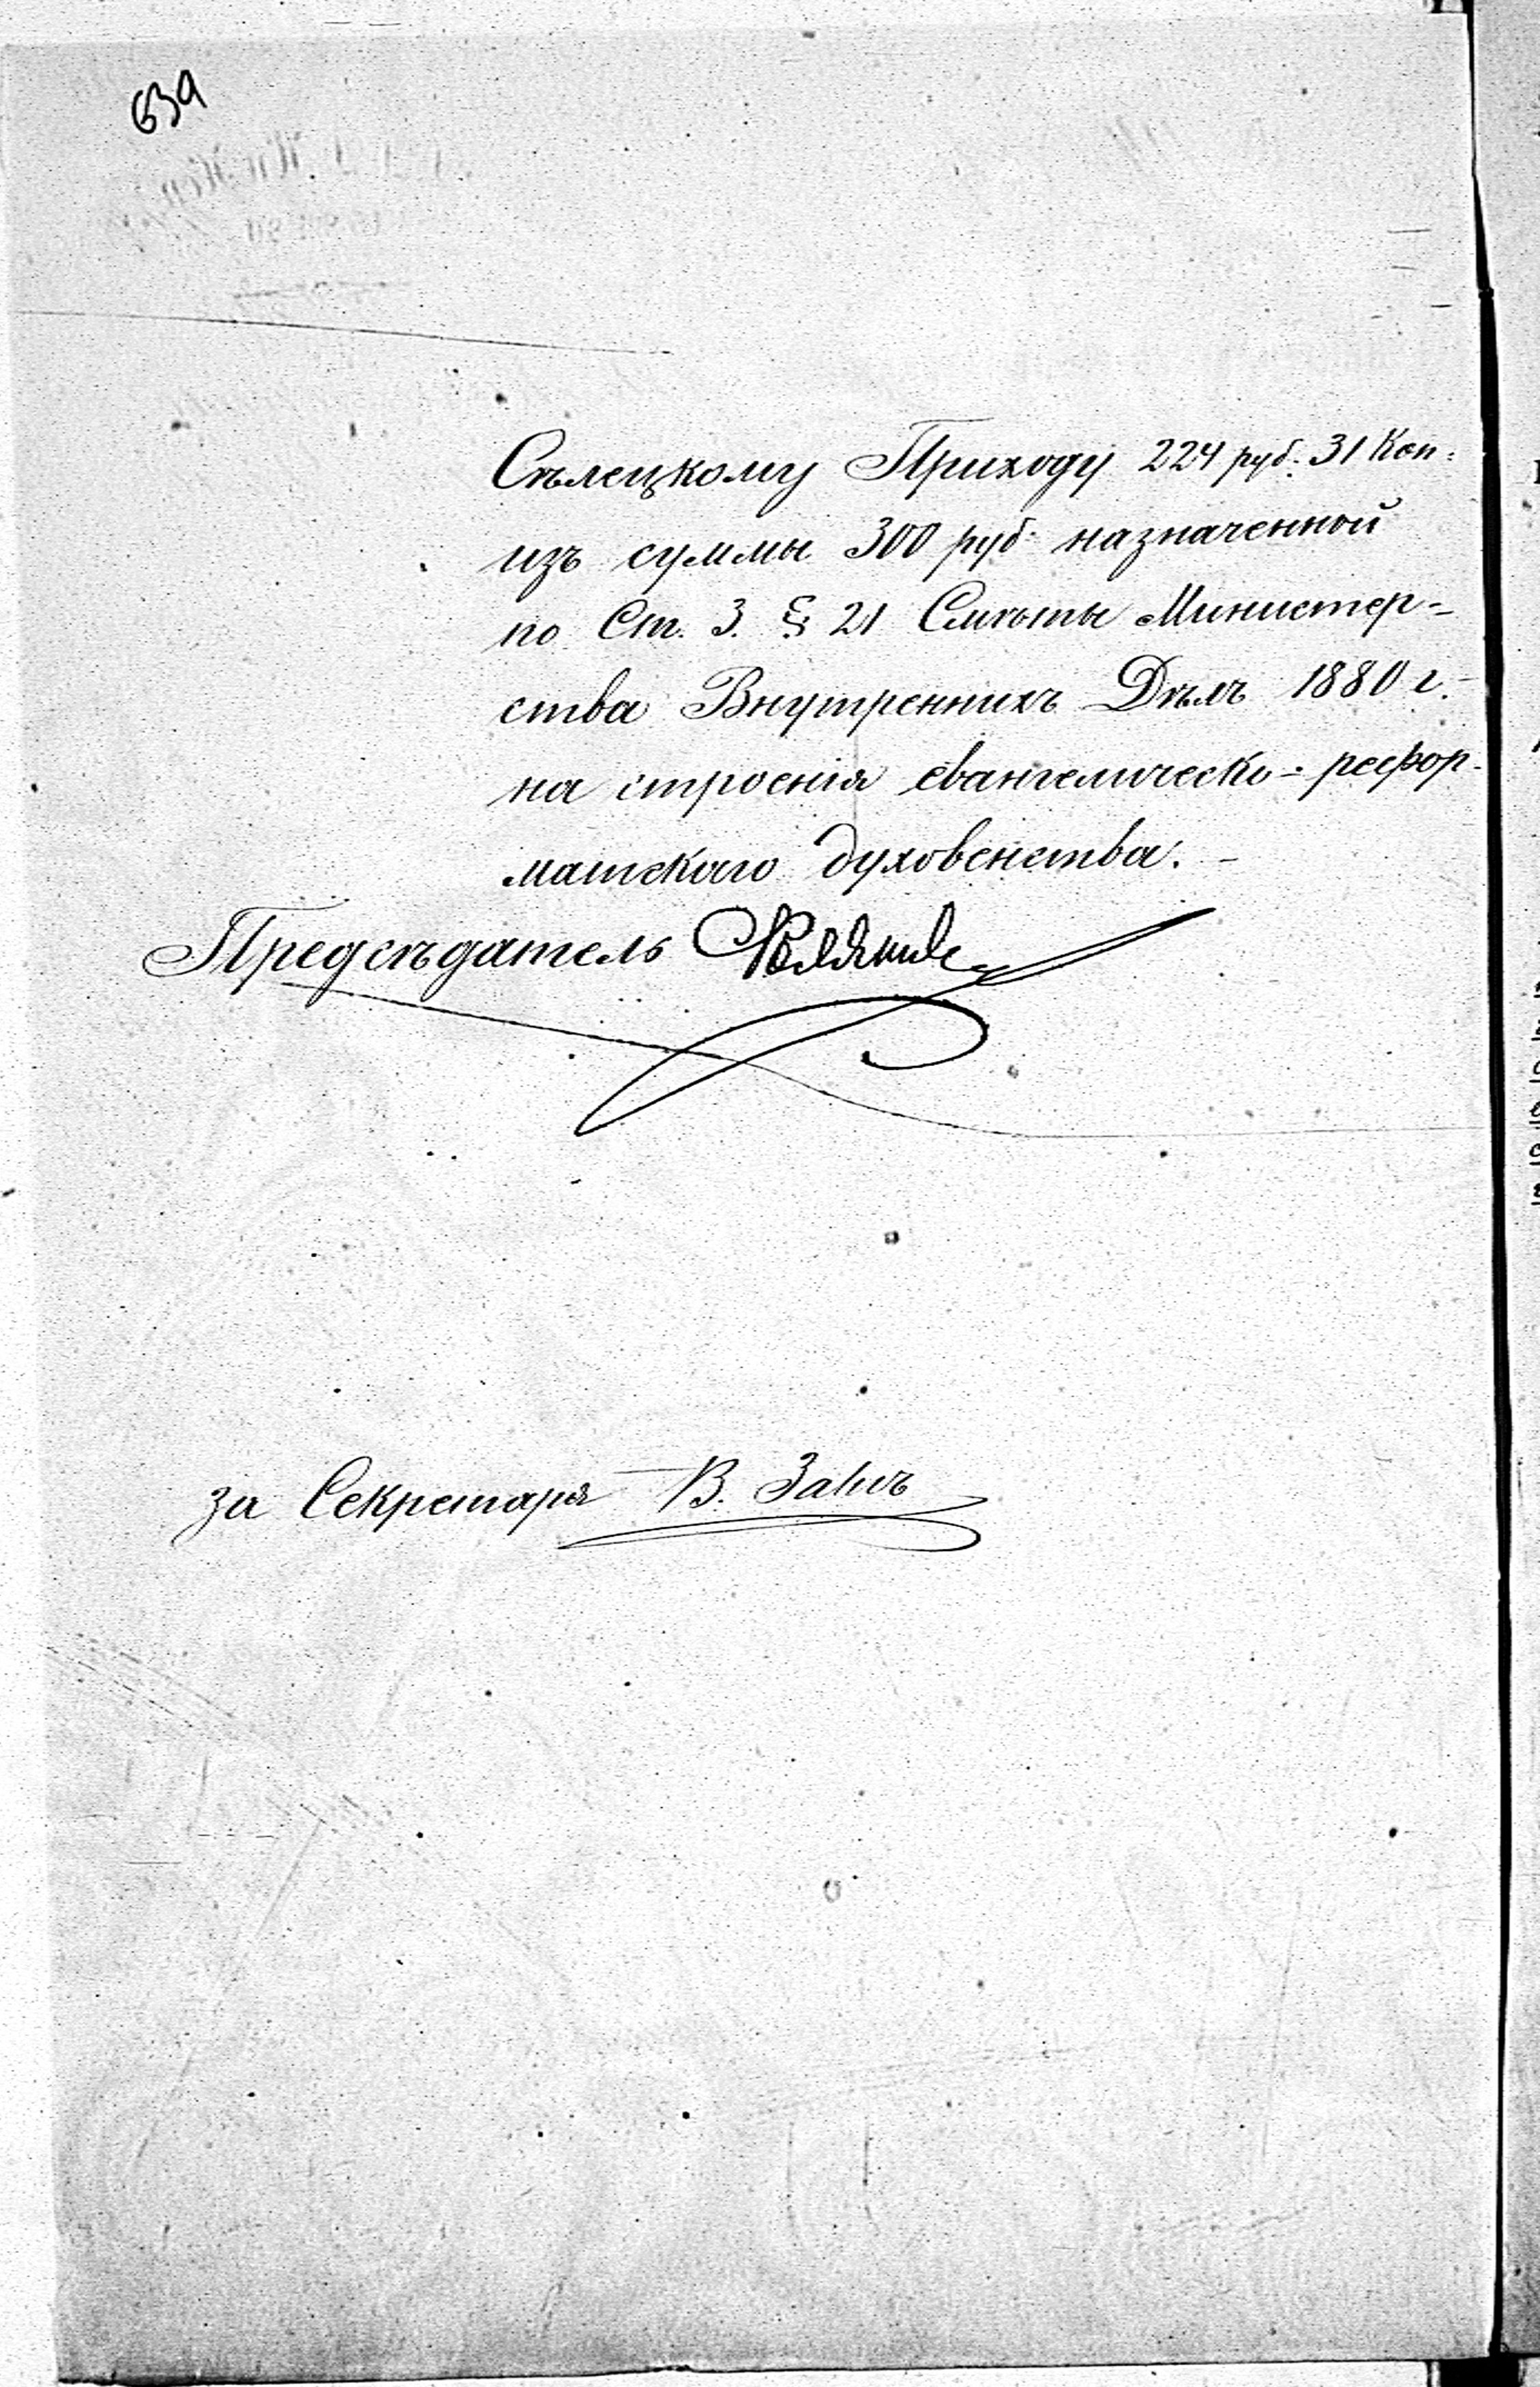 639
Сѣлецкому Приходу 224 руб. 31 Коп.
изъ суммы 300 руб. назначенной
по Ст. 3. § 21 Смѣты Министер-
ства Внутреннихъ Дѣлъ 1880 г.
на строенія евангелическо-рефор-
матскаго духовенства.
Предсѣдатель
за Секретаря В.